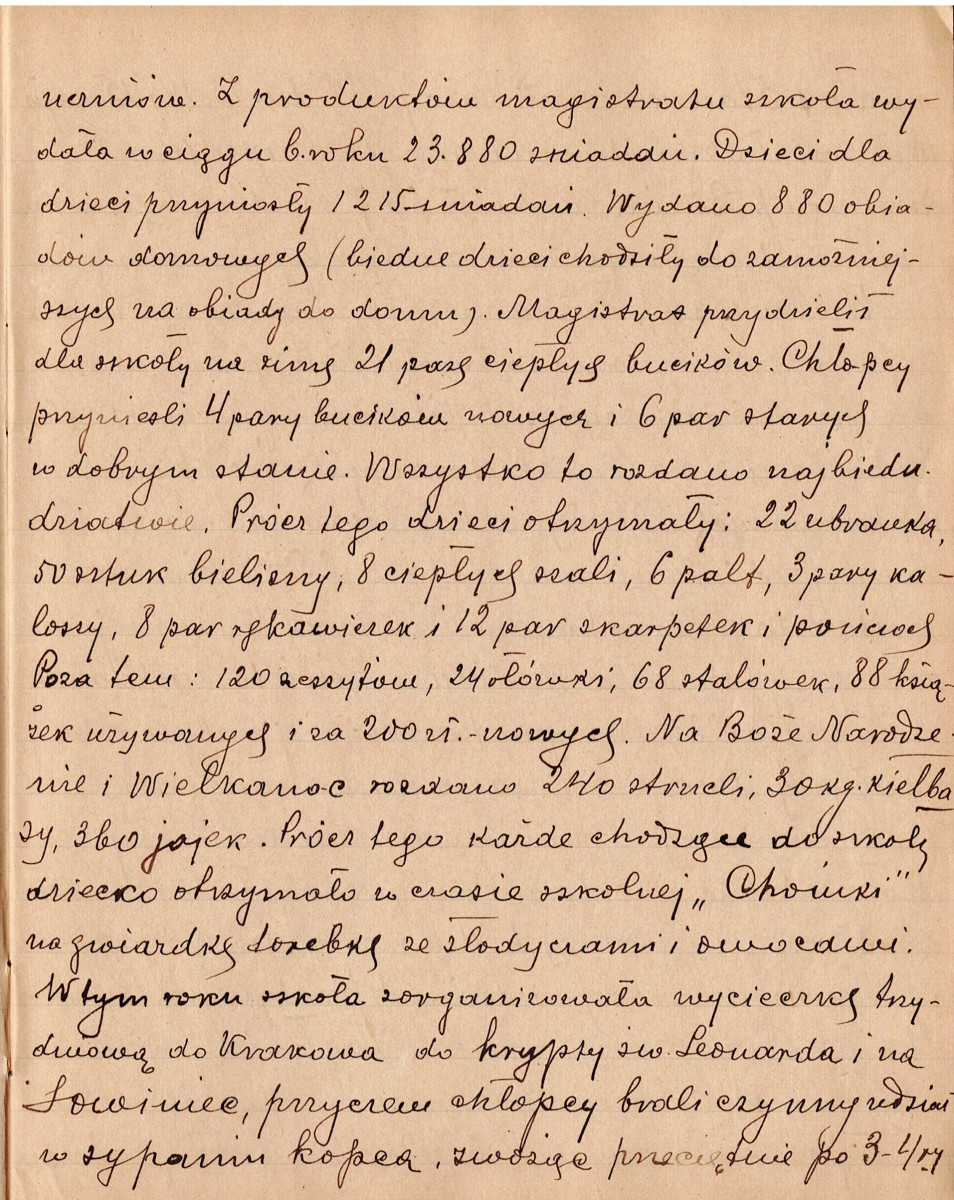 uczniów. Z produktów magistratu szkoła wy-
dała w ciągu b. roku 23.880 śniadań. Dzieci dla
dzieci przyniosły 1215 śniadań. Wydano 880 obia-
dów domowych (biedne dzieci chodziły do zamożniej-
szych na obiady do domu). Magistrat przydzielił
dla szkoły na zimę 21 parę ciepłych bucików. Chłopcy
przynieśli 4 pary bucików nowych i 6 par starych
w dobrym stanie. Wszystko to rozdano najbiedn.
dziatwie. Prócz tego dzieci otrzymały: 22 ubranka,
50 sztuk bielizny, 8 ciepłych szali, 6 palt, 3 pary ka-
loszy, 8 par rękawiczek i 12 par skarpetek i pończoch
Poza tem: 120 zeszytów, 24 ołówki, 68 stalówek, 88 ksią-
żek używanych i za 200 zł. - nowych. Na Boże Narodze-
nie i Wielkanoc rozdano 240 strucli, 30 kg. kiełba
sy, 360 jajek. Prócz tego każde chodzące do szkoły
dziecko otrzymało w czasie szkolnej „Choinki"
na gwiazdkę torebkę ze słodyczami i owocami.
W tym roku szkoła zorganizowała wycieczkę trzy-
dniową do Krakowa do krypty św. Leonarda i na
Sowiniec, przyczem chłopcy brali czynny udział
w sypaniu kopca, zwożąc przeciętnie po 3-4ry